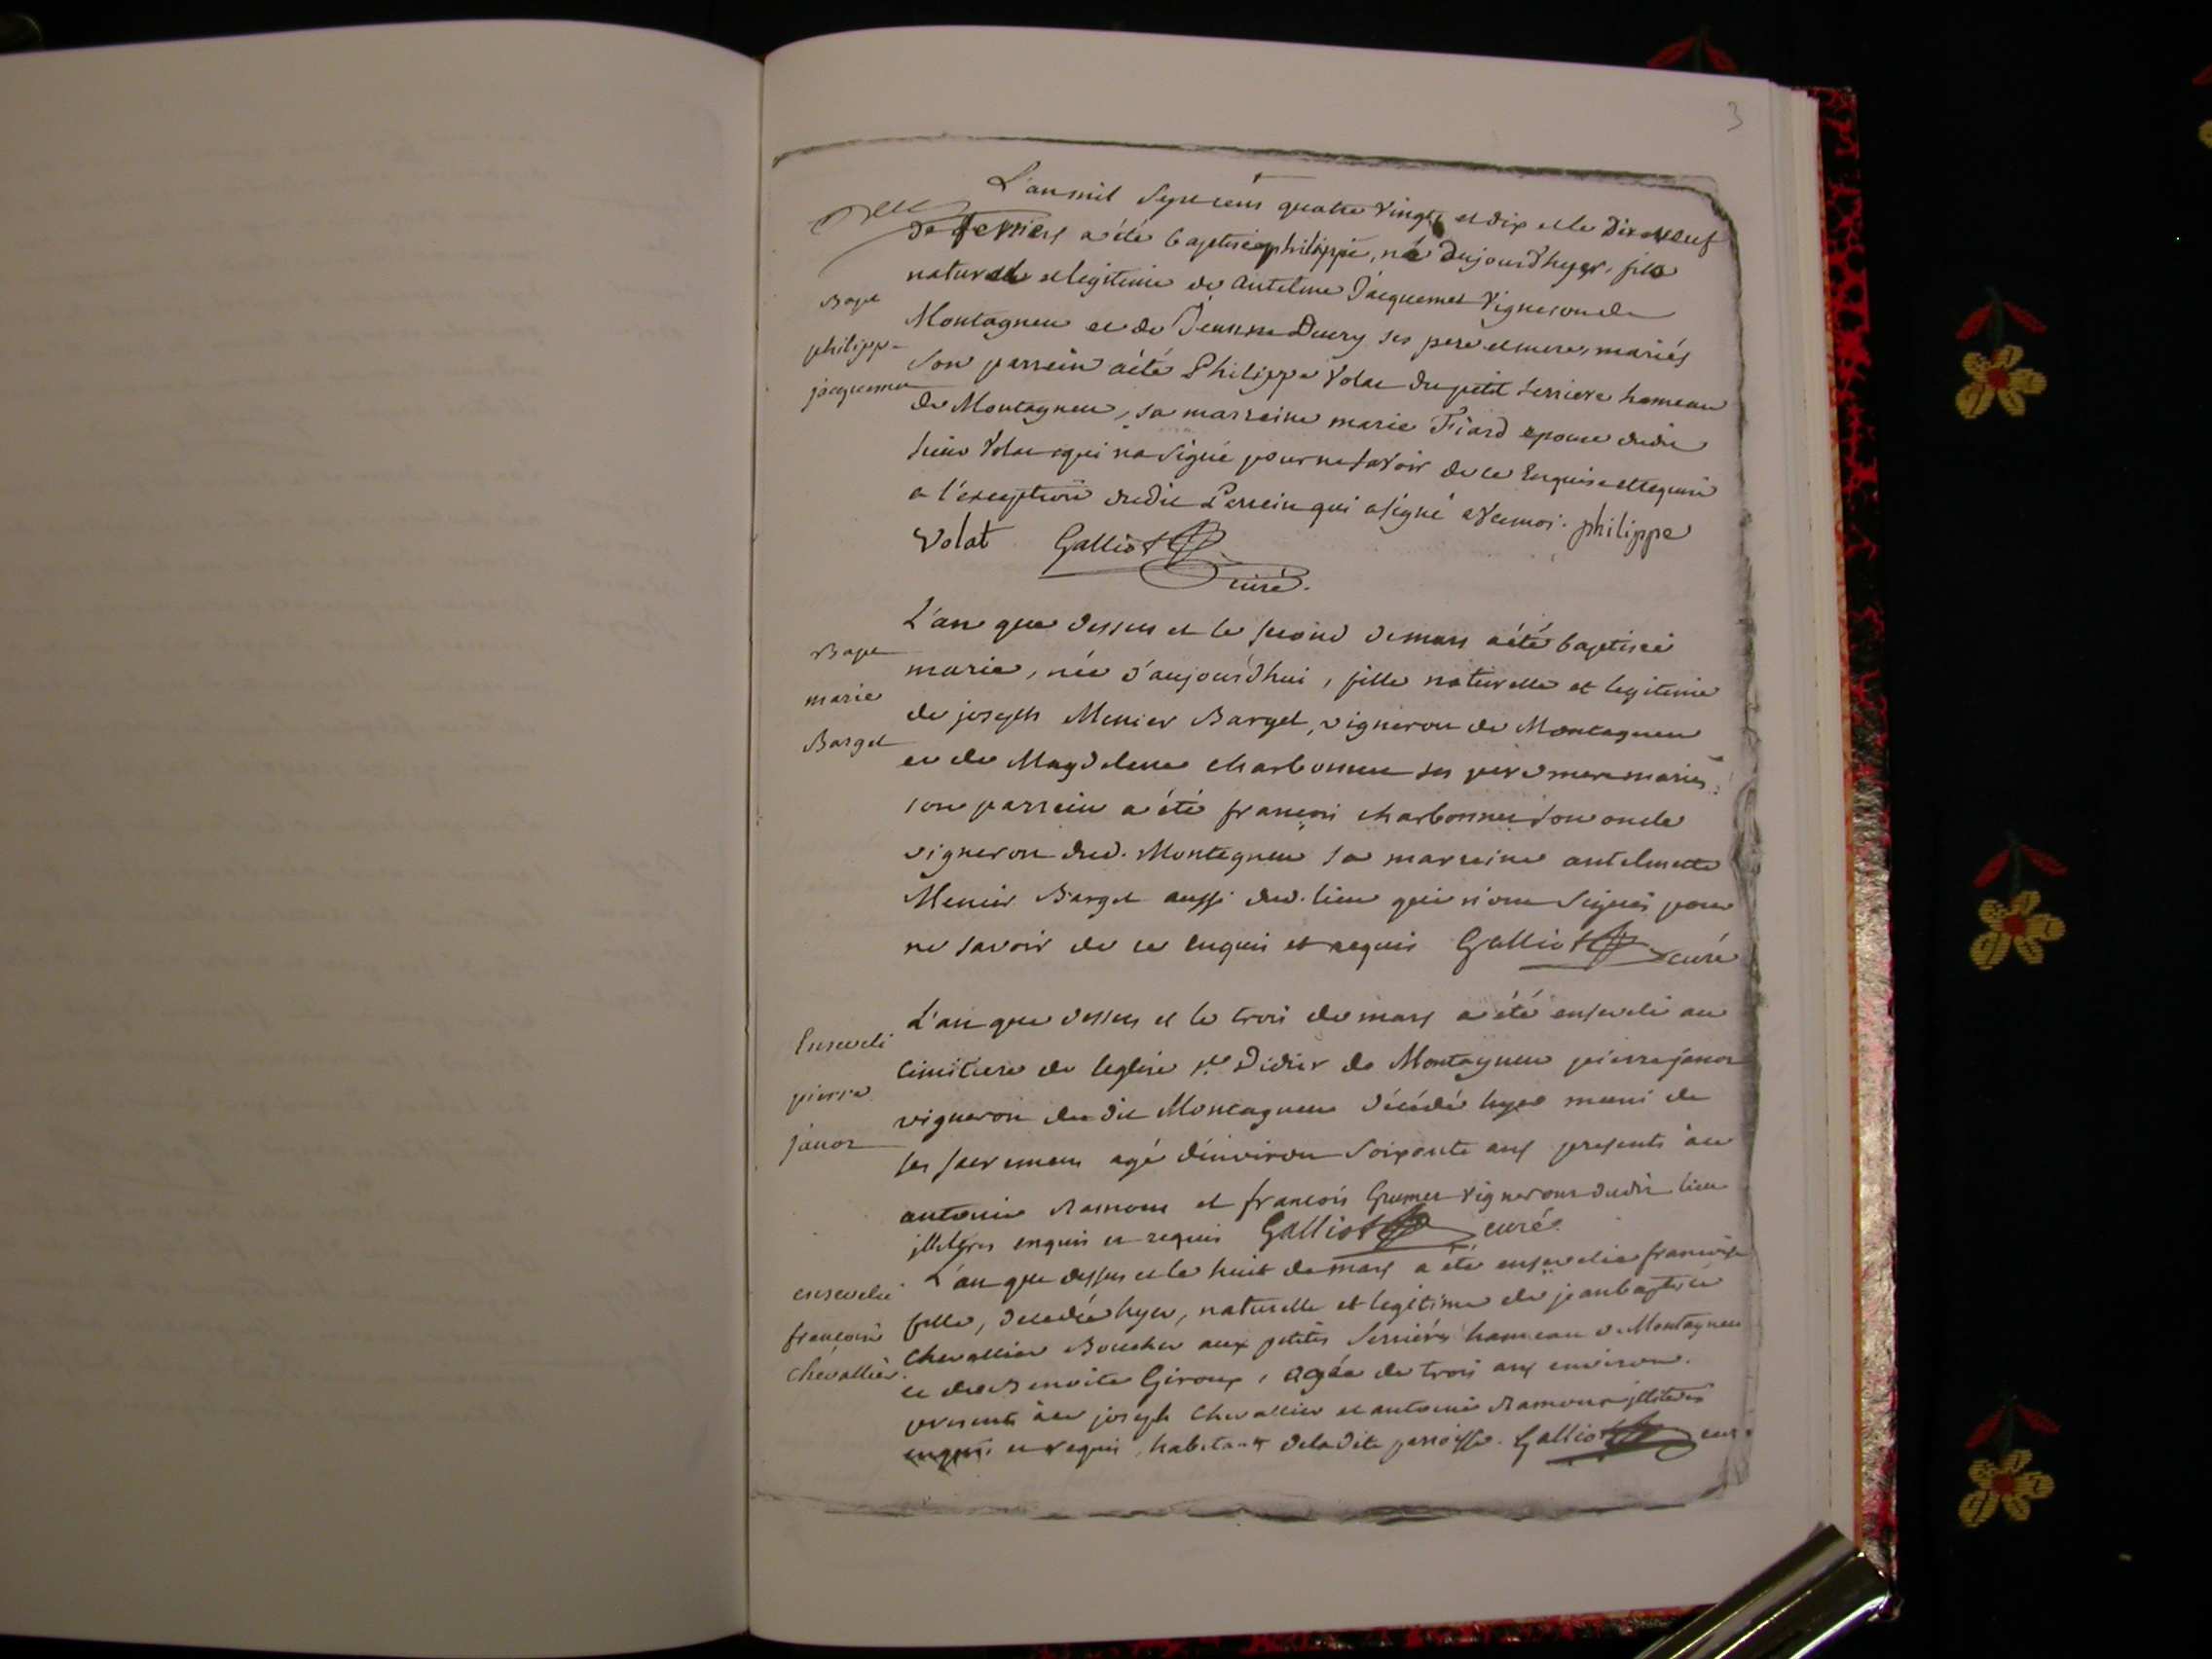 3
L'an mil sept cens quatre vingts et dix et le dix neuf
de fevrier a été baptisé philippe, né dujourdhuyer, fils
naturel et legitime de Antelme Jacquemet vigneron de
Montagneu et de Jeanne Ducry ses pere et mere, mariés
Bapt
philippe
jacquemet
son parrein a été Philippe Volat du petit serriere hameau
de Montagneu, sa marreine marie Fiard epouse dudit
sieur Volat qui n'a signé pour ne savoir de ce enquise et requise
a l'exception dudit Parrein qui a signé avec moi. philippe
Volat Galliot
curé.
L'an que dessus et le second de mars a été baptiseé
Bapt
marie
Barget
marie, née d'aujourd'hui, fille naturelle et legitime
de joseph Menier Barget, vigneron de Montagneu
et de Magdelene charbonnet ses pere mere mariés;
son parrein a été françois charbonnet son oncle
vigneron dud. Montagneu sa marreine antelmette
Menier Barget aussi dud. lieu qui n'ont signés pour
ne savoir de ce enquis et requis Galliot curé
L'an que dessus et le trois de mars a été enseveli au
Enseveli
pierre
janoz
cimitiere de leglise st Didier de Montagneu pierre janoz
vigneron du dit Montagneu décédé hyer muni de
ses sacremens agé d'environ soixante ans presents àce
antoine Ramoux et françois Grumet vignerons dudit lieu
illiteres enquis et requis Galliot curé.
L'an que dessus et le huit de mars a été ensevelie françoise
ensevelie
françoise
chevallier.
fille, decedée hyer, naturelle et legitime de jeanbaptiste
chevallier Boucher aux petites serrières hameau de Montagneu
et de Benoite Giroux, agée de trois ans environ.
presents àce joseph chevallier et antoine Ramoux illiteres
enquis et requis, habitants deladite parroisse. Galliot curé